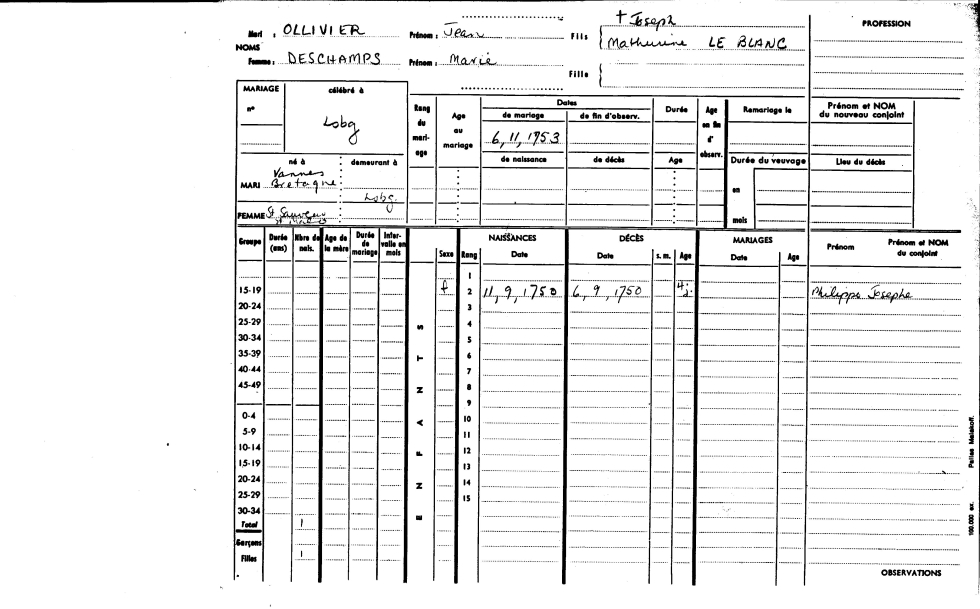 Mari : OLLIVIER Prénom : Jean Fils { + Joseph
Mathurine LE BLANC
PROFESSION
NOMS
Femme : DESCHAMPS Prénom : Marie
Fille {
MARIAGE célébré à
n°
Lobg
Rang du mari-age
Age au mariage
Dates
de mariage de fin d'observ.
6, 11, 1753
de naissance de décès
Durée
Age
Age en fin d' observ.
Remariage le
Prénom et NOM du nouveau conjoint
Durée du veuvage
Lieu du décès
en
mois
né à demeurant à
Vannes
MARI Bretagne
Lobg.
FEMME St Sauveur
Groupe Durée (ans) Nbre de nais. Age de la mère Durée de mariage Inter-valle en mois
ENFANTS
Sexe Rang
NAISSANCES Date
DÉCÈS Date s. m. Age
MARIAGES Date Age
Prénom Prénom et NOM du conjoint
1
15-19 f 2 11, 9, 1750 6, 9, 1750 4 j. Philippe Josephe
20-24 3
25-29 4
30-34 5
35-39 6
40-44 7
45-49 8
9
0-4 10
5-9 11
10-14 12
15-19 13
20-24 14
25-29 15
30-34
Total 1
Garçons
Filles 1
OBSERVATIONS
100.000 ex. Pallas Malakoff.